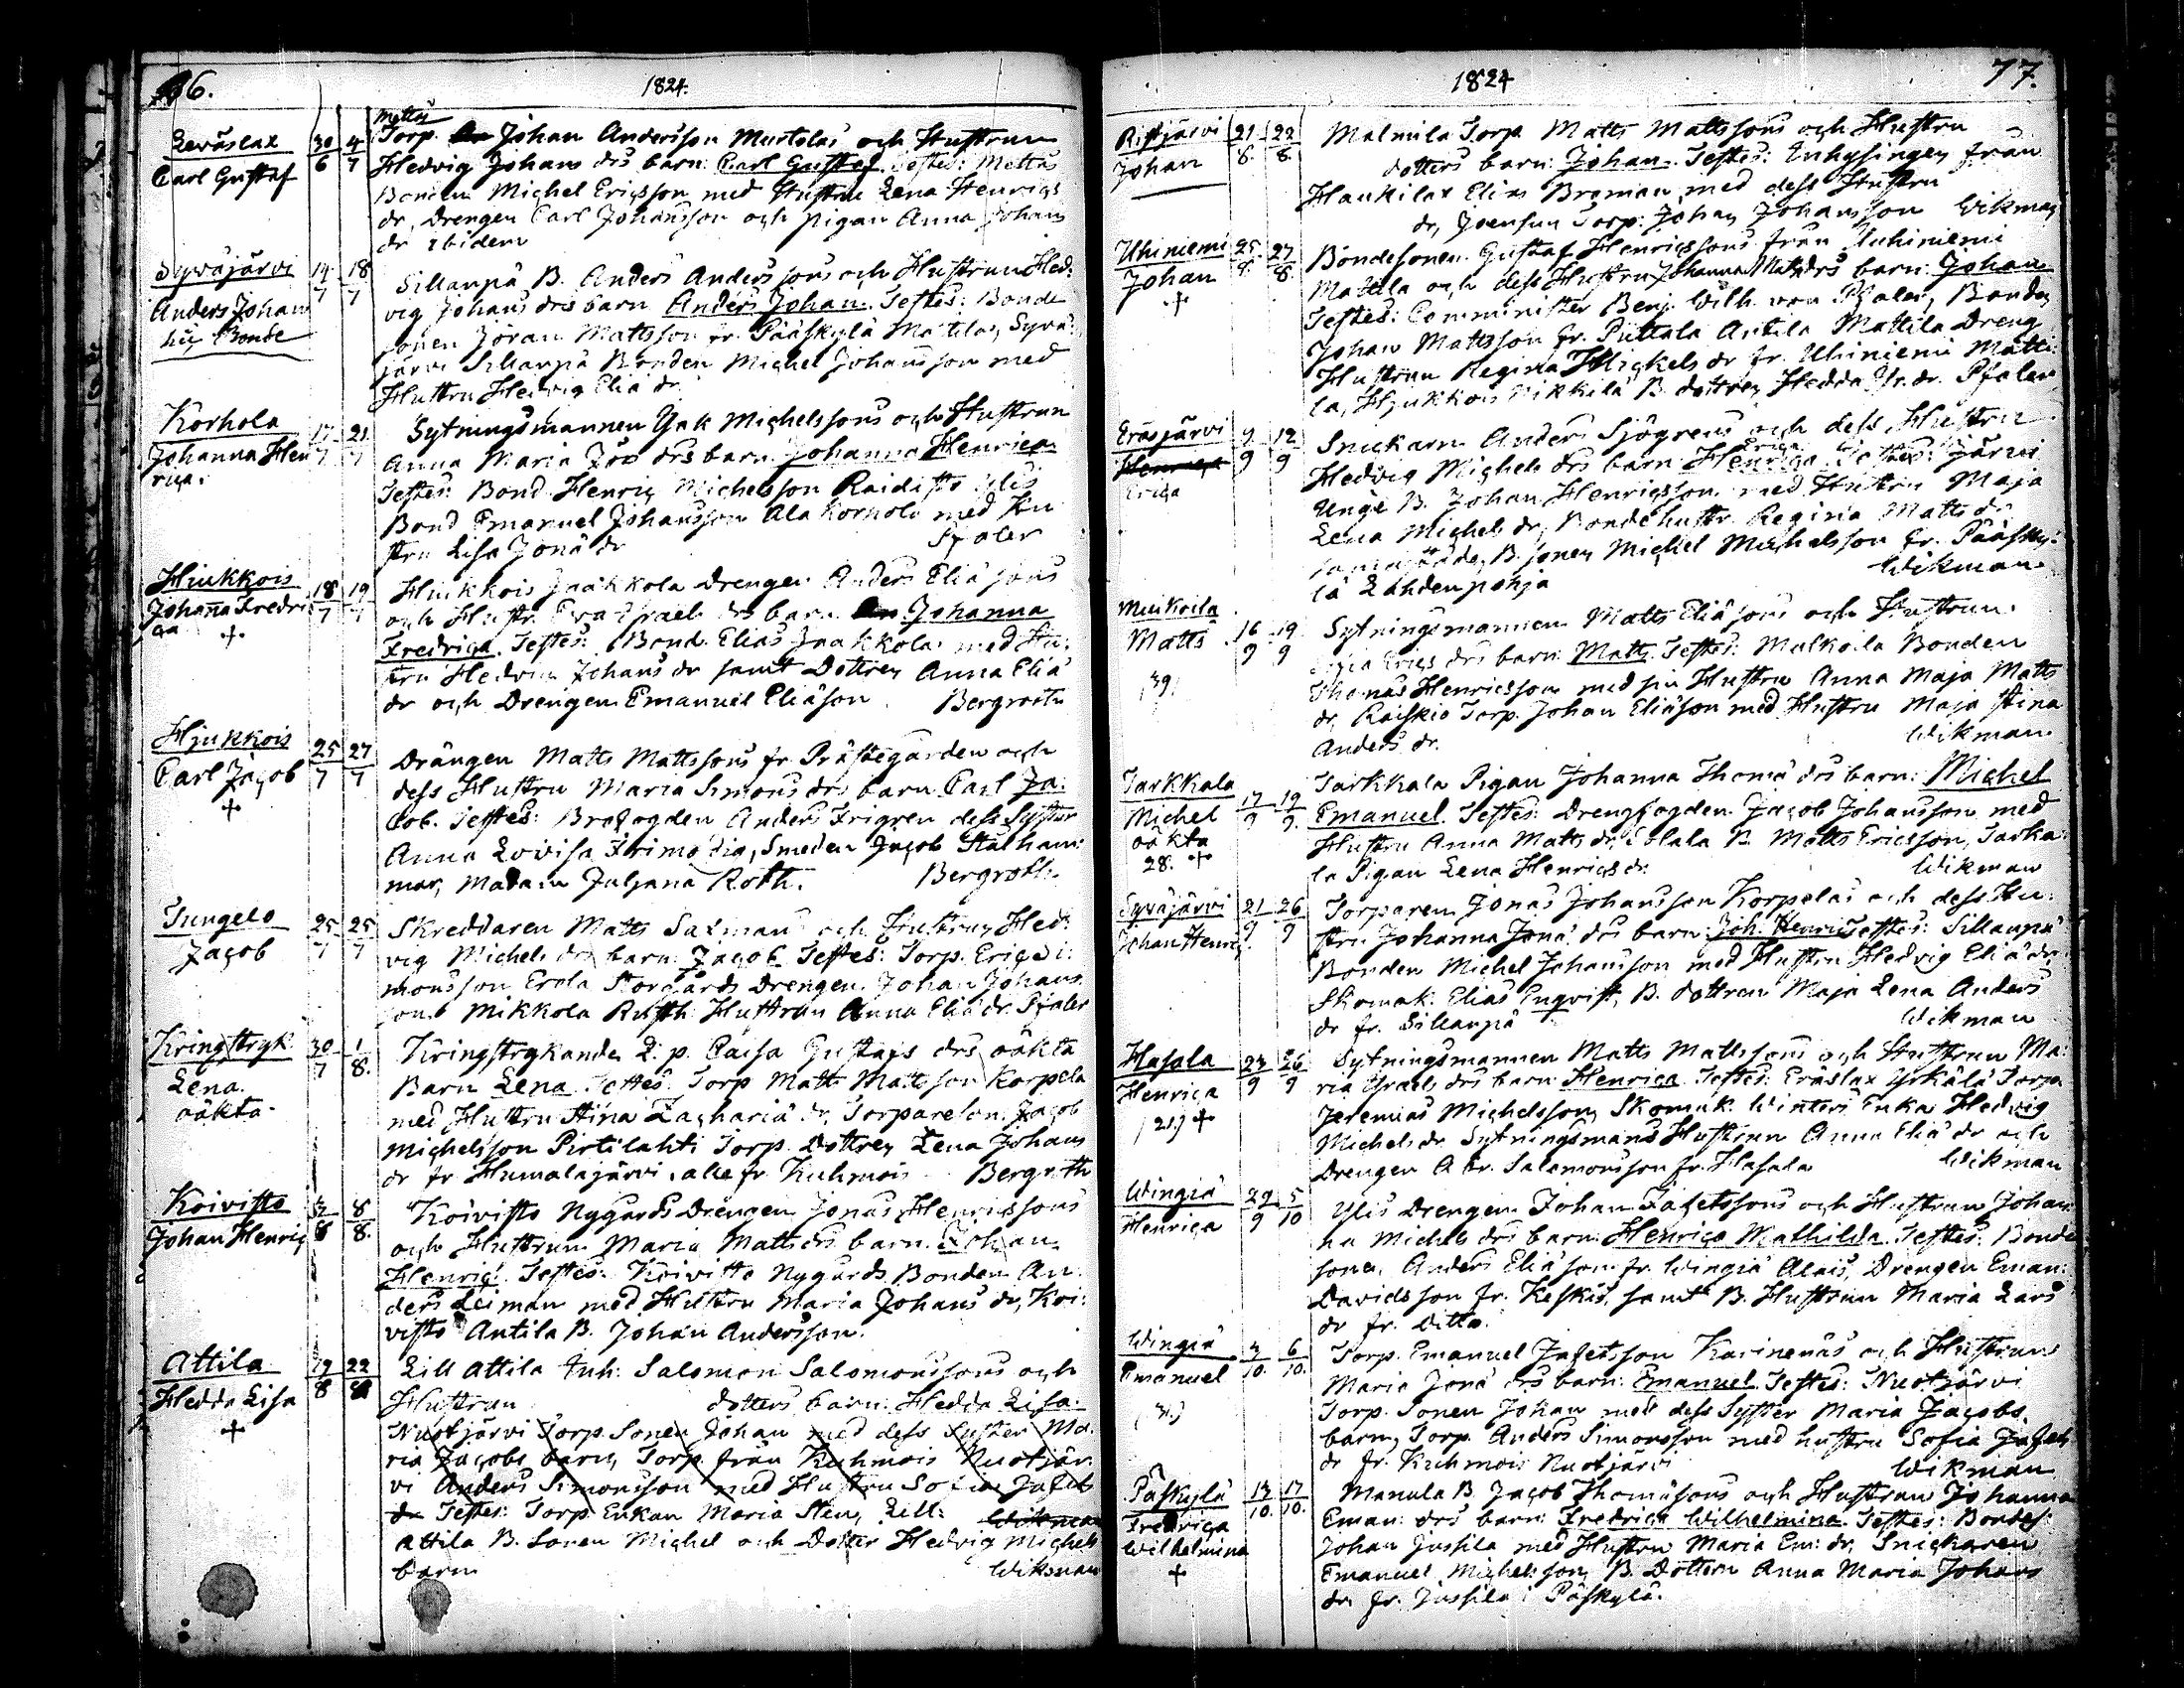 96.
1824.
Leväslax 30/6 4/7
Carl Gustaf
Mattas
Torp. Johan Andersson Murtolas och Hustrun
Hedvig Johans drs barn: Carl Gustaf. Testes: Mattas
Bonden Michel Ericsson med Hustru Lena Henrics
dr, Drengen Carl Johansson och pigan Anna Johans
dr ibidem
Syväjärvi 14/7 18/7
Anders Johan
Bonde
Sillanpä B. Anders Anderssons och Hustrun Hed:
vig Johans drs barn Anders Johan. Testes: Bonde
sonen Jöran Mattsson fr. Pääskylä Mattila, Syvä:
järvi Sillanpä Bonden Michel Johansson med
Hustru Hedvig Eliä dr.
Korhola 17/7 21/7
Johanna Hen
rica.
Sytningsmannen Isak Michelssons och Hustrun
Anna Maria drs barn Johanna Henrica
Testes: Bond. Henric Michelsson Raidisto
Bond Emanuel Johansson Ala Korhola med Hu
stru Lisa Jonä dr Pfaler
Hiukkois 18/7 19/7
Johanna Fredri
ca +
Hiukkois Jaakkola Drengen Anders Eliäsons
och Hustr. Eva Israels drs barn Johanna
Fredrica. Testes: Bond. Elias Jaakkola med Hu:
stru Hedvig Johans dr samt Dottren Anna Eliä
dr och Drengen Emanuel Eliäson Bergroth
Hjukkois 25/7 27/7
Carl Jacob
+
Drängen Matts Mattssons fr Prästegården och
dess Hustru Maria Simons drs barn Carl Ja:
cob. Testes: Brofogden Anders Frigren dess Syster
Anna Lovisa Frimodig, Smeden Jacob Stålham:
mar, Madam Juljana Roth. Bergroth.
Tungelo 25/7 25/7
Jacob
Skreddaren Matts Saxmans och Hustrun Hed:
vig Michels drs barn: Jacob Testes: Torp. Eric Si:
monsson Erola Storgårds Drengen Johan Johans
son Mikkola Rusth. Hustrun Anna Eliä dr. Pfaler
Kringstryk. 30/7 1/8.
Lena.
oäkta.
Kringstrykande L. p. Caisa Gustafs drs oäkta
Barn Lena Testes: Torp Matts Mattsson Korpela
med Hustru Stina Zachariä dr, Torpareson Jacob
Michelsson Pirtilahti Torp. Dottren Lena Johans
dr fr Humalajärvi, alle fr. Kuhmois Bergroth
Koivisto 8/8.
Johan Henric
Koivisto Nygårds Drengen Jonas Henricssons
och Hustrun Maria Matts drs barn. Johan
Henric. Testes: Koivisto Nygårds Bonden An
ders Leiman med Hustru Maria Johans dr, Koi:
visto Antila B. Johan Andersson.
Attila 19/8 22/8
Hedda Lisa
+
Lill Attila Inh: Salomon Salomonssons och
Hustrun dotters barn: Hedda Lisa.
Nuotjärvi Torp. Sonen Johan med dess Syster Ma:
ria Jacobs barn, Torp. från Kuhmois Nuotjär
vi Anders Simonsson med Hustru Sofia Jafets
dr Testes: Torp. Enkan Maria Sten, Lill: Wikman
Attila B. Sonen Michel och Dotter Hedvig Michels
barn Wikman
1824
77.
Ristjärvi 21/8. 22/8
Johan
Malmila Torp. Matts Mattssons och Hustru
dotters barn: Johan. Testes: Inhysingen från
Haukilax Elias Broman med dess Hustru
dr, Joensuu Torp. Johan Johansson Wikman
Uhiniemi 25/8. 27/8
Johan
+
Bondesonen Gustaf Henricssons från Uuhiniemi
Mattila och dess Hustru Johanna Matts drs barn: Johan
Testes: Comminister Benj. Wilh. von Pfaler, Bonden
Johan Mattsson fr. Puttala Antila Mattila Dreng
Hustrun Regina Michels dr fr. Uhiniemi Matti:
la, Hjukkois Nikkilä B. dottren Hedda Jfr. dr. Pfaler
Eräsjärvi 9/9 12/9
Henrica
Erica
Snickarn Anders Sjögrens och dess Hustru
Hedvig Michels drs barn: Henrica Erica Testes: Järvis
Unge B. Johan Henricsson med Hustru Maja
Lena Michels dr, Bonde hustr. Regina Matts dr
B. sonen Michel Michelsson fr. Pääsky:
lä Lahdenpohja Wikman
Muikoila
Matts 16/9 19/9
39
Sytningsmannen Matts Eliäsons och Hustrun
Erics drs barn: Matts. Testes: Muikoila Bonden
Thomas Henricsson med sin Hustru Anna Maja Matts
dr, Raiskio Torp. Johan Eliäson med Hustru Maja Stina
Anders dr. Wikman.
Tarkkala
Michel 17/9 19/9.
oäkta
28. +
Tarkkala Pigan Johanna Thomä drs barn: Michel
Emanuel. Testes: Drengfogden Jacob Johansson med
Hustru Anna Matts dr, B. Matts Ericsson, Tarka:
la Pigan Lena Henrics dr. Wikman
Syväjärvi 21/9 26/9
Johan Henric
Torparen Jonas Johansson Korpelas och dess Hu:
stru Johanna Jonä drs barn Joh. Henric Testes: Sillanpä
Bonden Michel Johansson med Hustru Hedvig Eliä dr,
Skomak. Elias Enqvist, B. dottren Maja Lena Anders
dr fr. Sillanpä Wikman
Hasala 24/9 26/9
Henrica
(21) +
Sytningsmannen Matts Mattssons och Hustrun Ma:
ria Israels drs barn: Henrica. Testes: Eräslax Yrkälä Torp.
Jeremias Michelsson, Skomak. Winters Enka Hedvig
Michels dr Sytningsmans Hustrun Anna Eliä dr och
Drengen Abr. Salomonsson fr. Hasala Wikman
Wingiä 29/9 5/10
Henrica
Ylis Drengen Johan Jafetssons och Hustrun Johan:
na Michels drs barn: Henrica Mathilda. Testes: Bonde
sonen Anders Eliäson fr. Wingiä Alais, Drengen Eman:
Davidsson fr. Keskis, samt B. Hustrun Maria Lars
dr fr. Ditto.
Wingiä 3/10. 6/10.
Emanuel
Torp. Emanuel Jafetsson Kavinenäs och Hustrun
Maria Jonä drs barn: Emanuel Testes: Nuotjärvi
Torp. Sonen Johan med dess Syster Maria Jacobs
barn, Torp. Anders Simonsson med hustru Sofia Jafets
dr fr. Kuhmois Nuotjärvi Wikman
Påskylä 17/10.
Fredrica
Wilhelmina
+
Manula B. Jacob Thomäsons och Hustrun Johanna
Eman: drs barn: Fredrica Wilhelmina Testes: Bondes:
Johan Jussila med Hustru Maria Em: dr, Snickaren
Emanuel Michelsson, B. Dottern Anna Maria Johans
dr fr. Jussila i Påskylä.